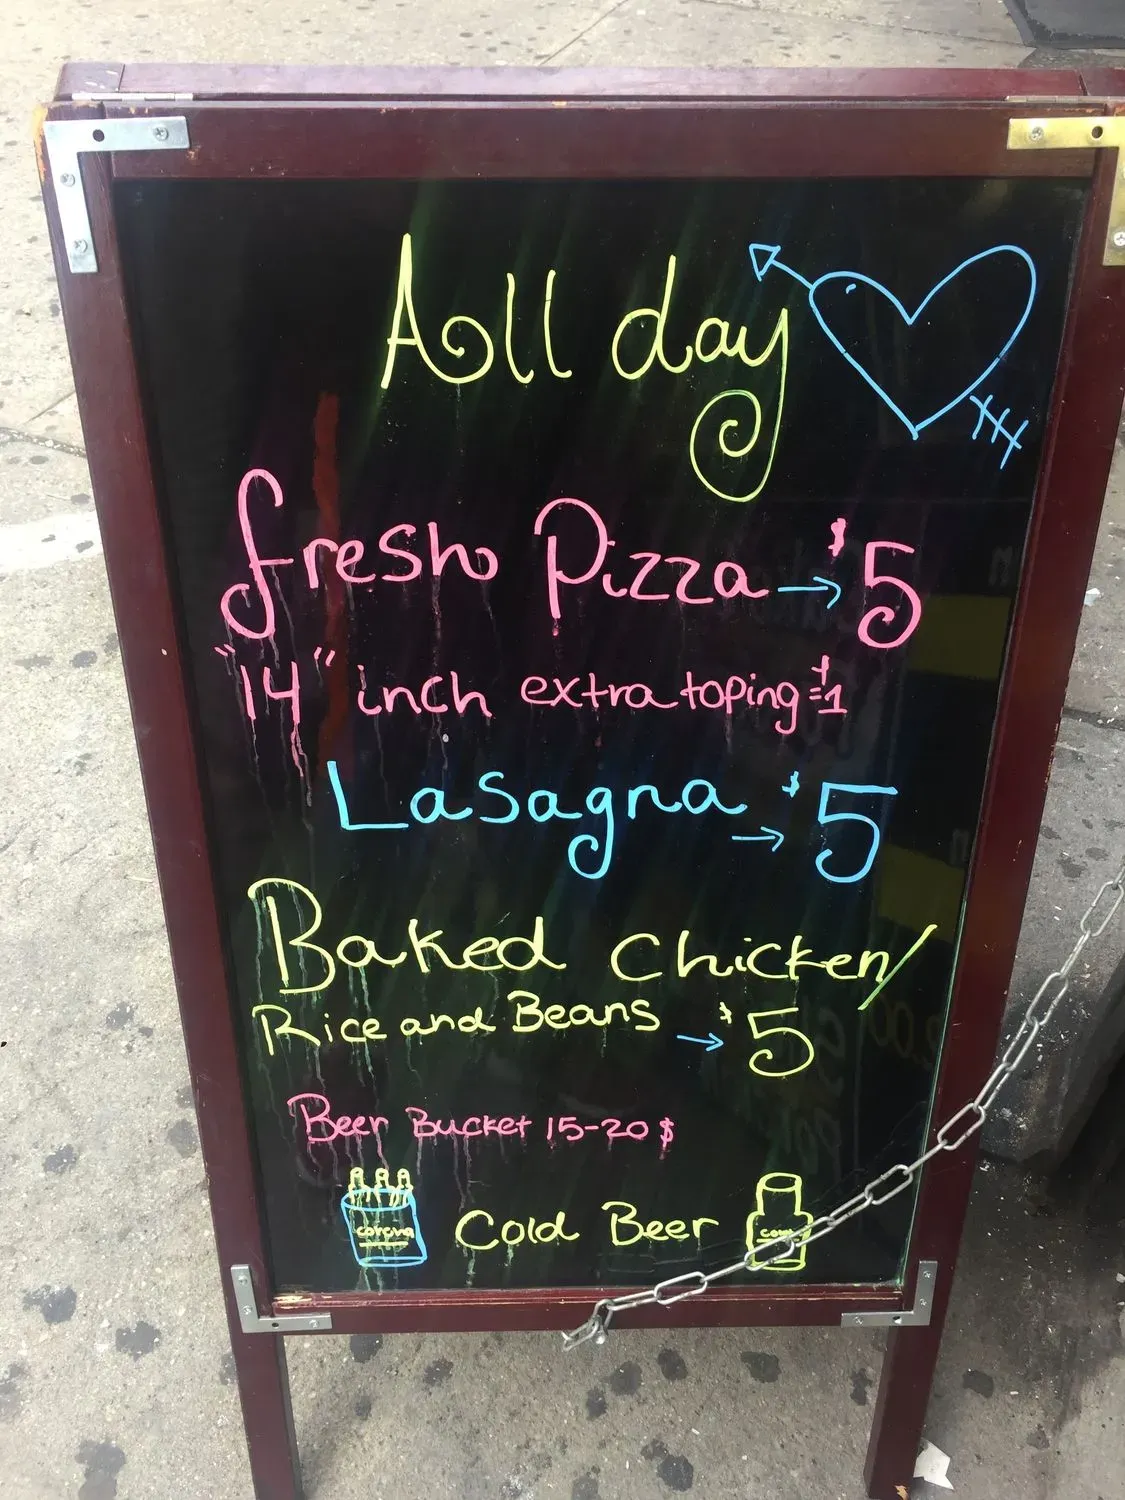 All day
fresh Pizza → $5
"14" inch extra toping = $1
Lasagna → $5
Baked Chicken/
Rice and Beans → $5
Beer Bucket 15-20 $
corona
Cold Beer